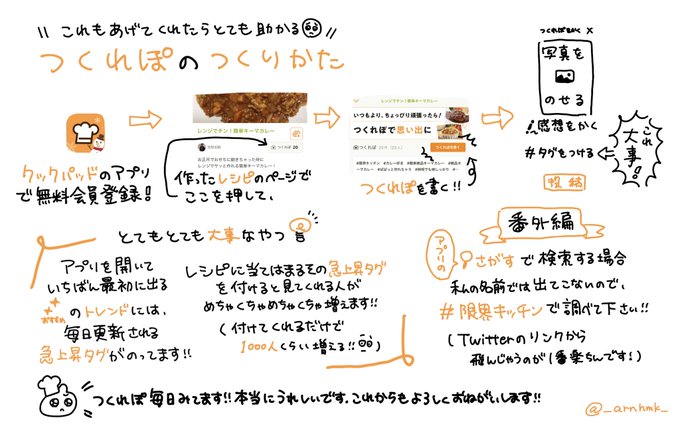 これもあげてくれたらとても助かる
つくれぽのつくりかた
クックパッドのアプリ
で無料会員登録!
レンジでチン!簡単キーマカレー
つくれぽ 20
お正月でおせちに飽きちゃった時に
レンジでサッと作れる簡単キーマカレー!
作ったレシピのページで
ここを押して、
レンジでチン!簡単キーマカレー
いつもより、ちょっぴり頑張ったら!
つくれぽで思い出に
つくれぽを書く
つくれぽを書く!!
つくれぽをかく ×
写真を
のせる
感想をかく
#タグをつける
これ
大事!
投稿
とてもとても大事なやつ
アプリを開いて
いちばん最初に出る
おすすめ
のトレンドには、
毎日更新される
急上昇タグがのってます!!
レシピに当てはまるその急上昇タグ
を付けると見てくれる人が
めちゃくちゃめちゃくちゃ増えます!!
(付けてくれるだけで
1000人くらい増える!!)
番外編
アプリの
さがすで検索する場合
私の名前では出てこないので、
#限界キッチンで調べて下さい!!
(Twitterのリンクから
飛んじゃうのが1番楽ちんです!)
つくれぽ毎日みてます!!本当にうれしいです。これからもよろしくおねがいします!!
@_arnhmk_